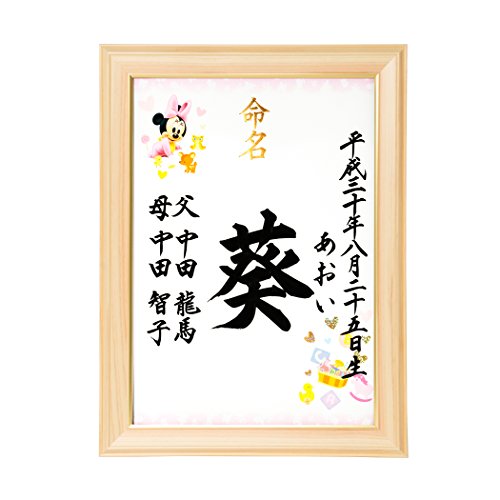 命名
平成三十年八月二十五日生
あおい
葵
父 中田 龍馬
母 中田 智子